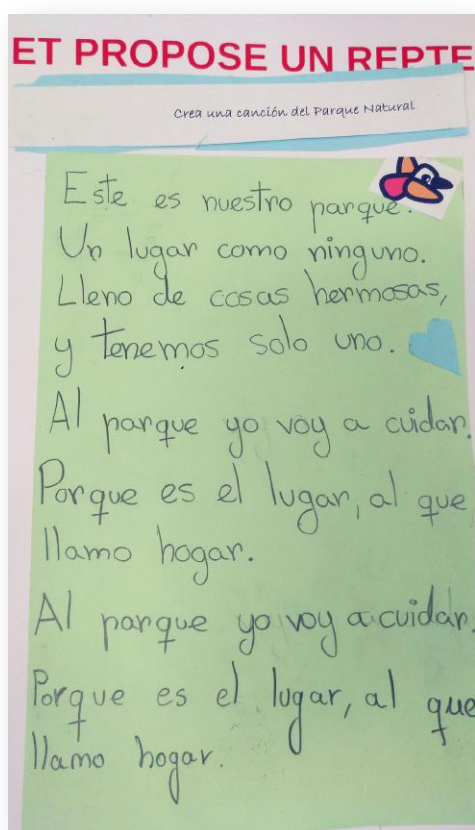 ET PROPOSE UN REPTE
Crea una canción del Parque Natural
Este es nuestro parque.
Un lugar como ninguno.
Lleno de cosas hermosas,
y tenemos solo uno.
Al parque yo voy a cuidar.
Porque es el lugar, al que
llamo hogar.
Al parque yo voy a cuidar.
Porque es el lugar, al que
llamo hogar.